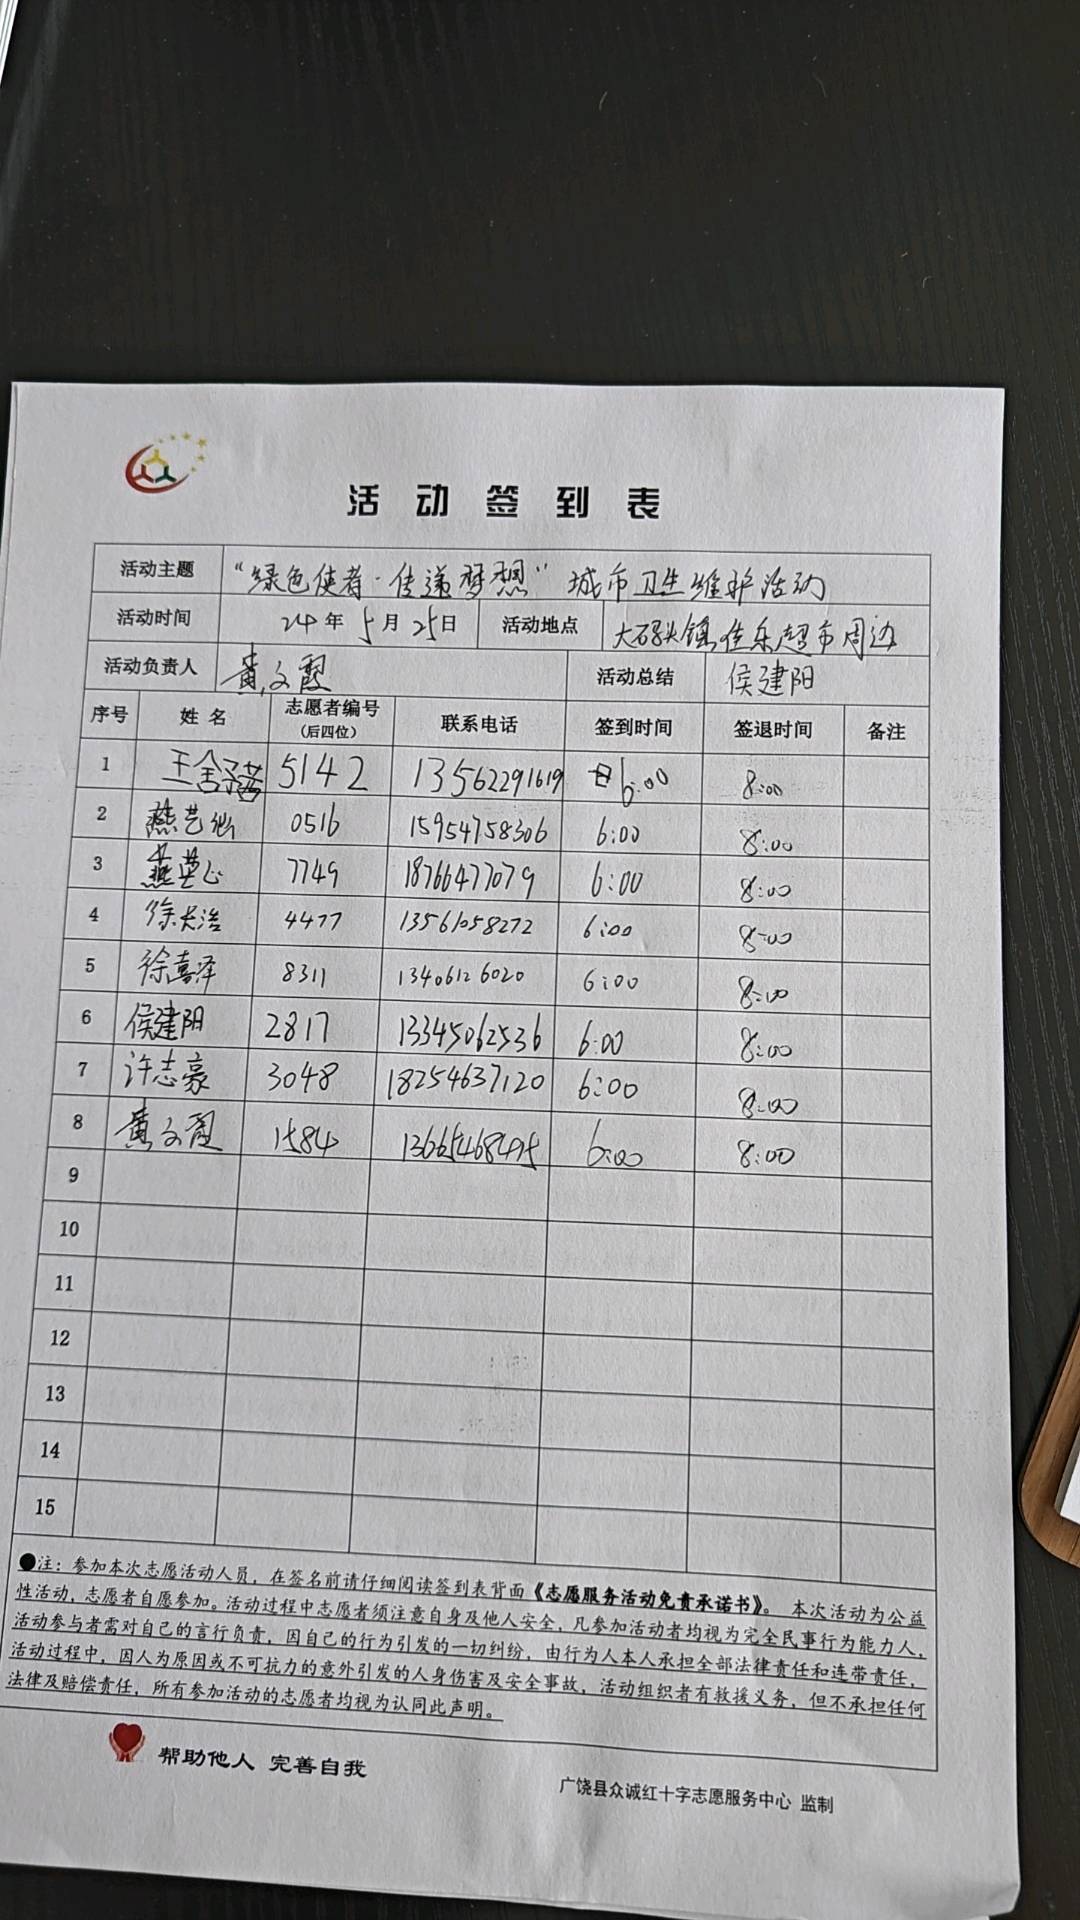 活动签到表
活动主题 “绿色使者·传递梦想”城市卫生维护活动
活动时间 24年5月25日 活动地点 大码头镇佳乐超市周边
活动负责人 黄文霞 活动总结 侯建阳
序号 姓名 志愿者编号(后四位) 联系电话 签到时间 签退时间 备注
1 王 5142 13562291619 6:00 8:00
2 燕艺 0516 15954758306 6:00 8:00
3 燕 7749 18766477079 6:00 8:00
4 徐长浩 4477 13561058272 6:00 8:00
5 徐嘉泽 8311 13406126020 6:00 8:00
6 侯建阳 2817 13345062536 6:00 8:00
7 许志豪 3048 18254637120 6:00 8:00
8 黄文霞 1584 13665468495 6:00 8:00
9
10
11
12
13
14
15
●注：参加本次志愿活动人员，在签名前请仔细阅读签到表背面《志愿服务活动免责承诺书》。本次活动为公益
性活动，志愿者自愿参加。活动过程中志愿者须注意自身及他人安全，凡参加活动者均视为完全民事行为能力人，
活动参与者需对自己的言行负责，因自己的行为引发的一切纠纷，由行为人本人承担全部法律责任和连带责任，
活动过程中，因人为原因或不可抗力的意外引发的人身伤害及安全事故，活动组织者有救援义务，但不承担任何
法律及赔偿责任，所有参加活动的志愿者均视为认同此声明。
帮助他人 完善自我
广饶县众诚红十字志愿服务中心 监制